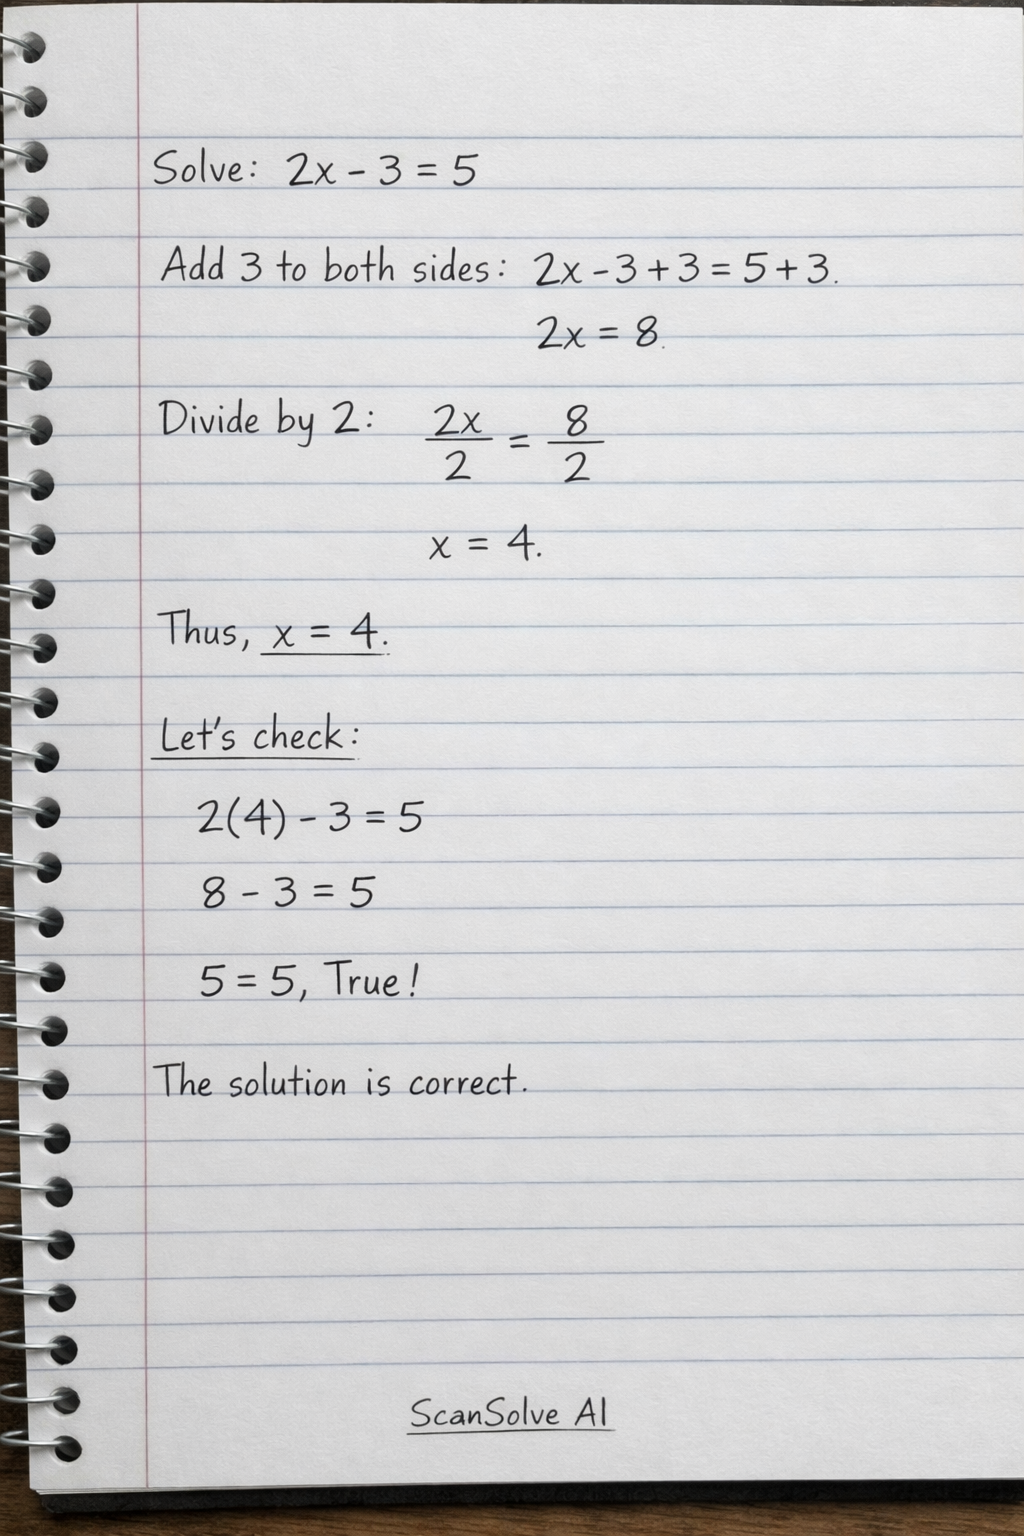 Solve: 2x - 3 = 5
Add 3 to both sides: 2x - 3 + 3 = 5 + 3.
2x = 8.
Divide by 2: 2x/2 = 8/2
x = 4.
Thus, x = 4.
Let's check:
2(4) - 3 = 5
8 - 3 = 5
5 = 5, True!
The solution is correct.
ScanSolve AI